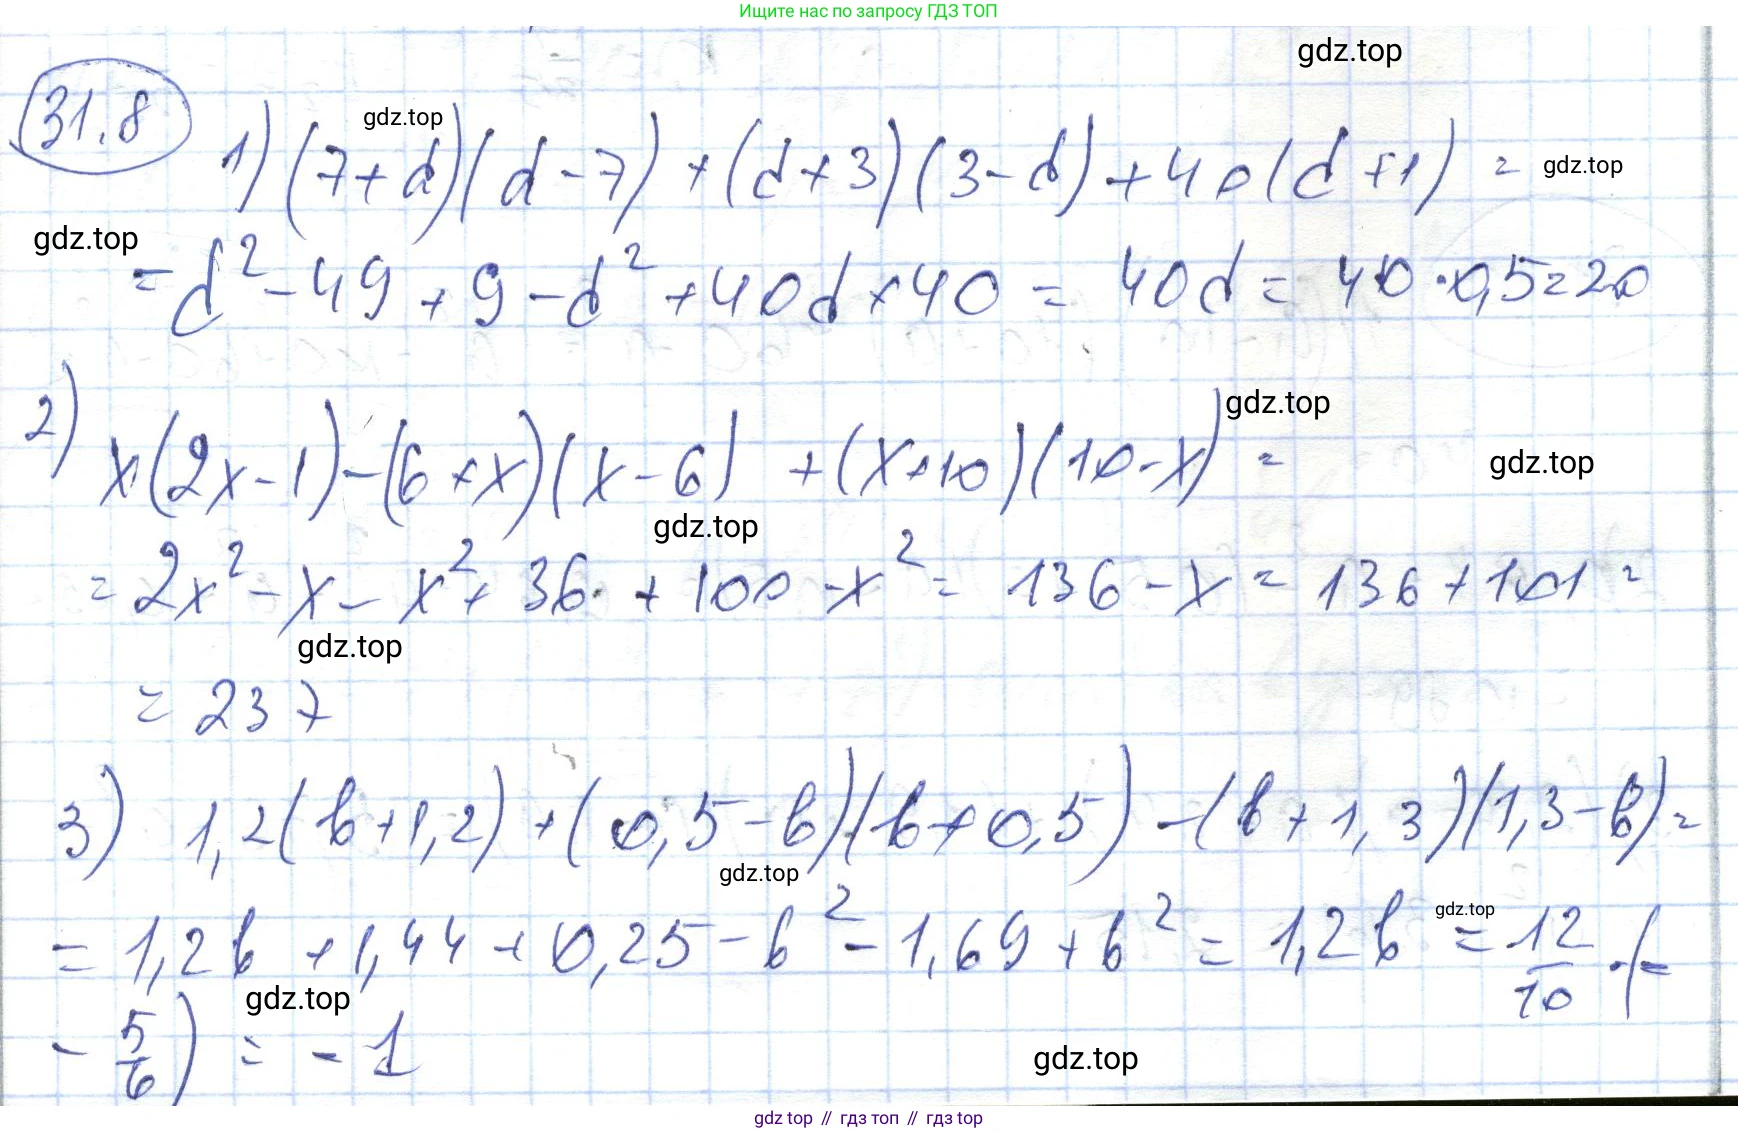 Ищите нас по запросу ГДЗ ТОП
gdz.top
31.8
gdz.top
1) (7+d)(d-7) + (d+3)(3-d) + 40(d+1) =
gdz.top
gdz.top
= d² - 49 + 9 - d² + 40d + 40 = 40d = 40·0,5 = 20
gdz.top
2) x(2x-1) - (6+x)(x-6) + (x+10)(10-x) =
gdz.top
gdz.top
= 2x² - x - x² + 36 + 100 - x² = 136 - x = 136 + 101 =
gdz.top
= 237
3) 1,2(b+1,2) + (0,5-b)(b+0,5) - (b+1,3)(1,3-b) =
gdz.top
= 1,2b + 1,44 + 0,25 - b² - 1,69 + b² = 1,2b = 12/10 · (-
gdz.top
gdz.top
- 5/6) = -1
gdz.top
gdz top // гдз топ // гдз top